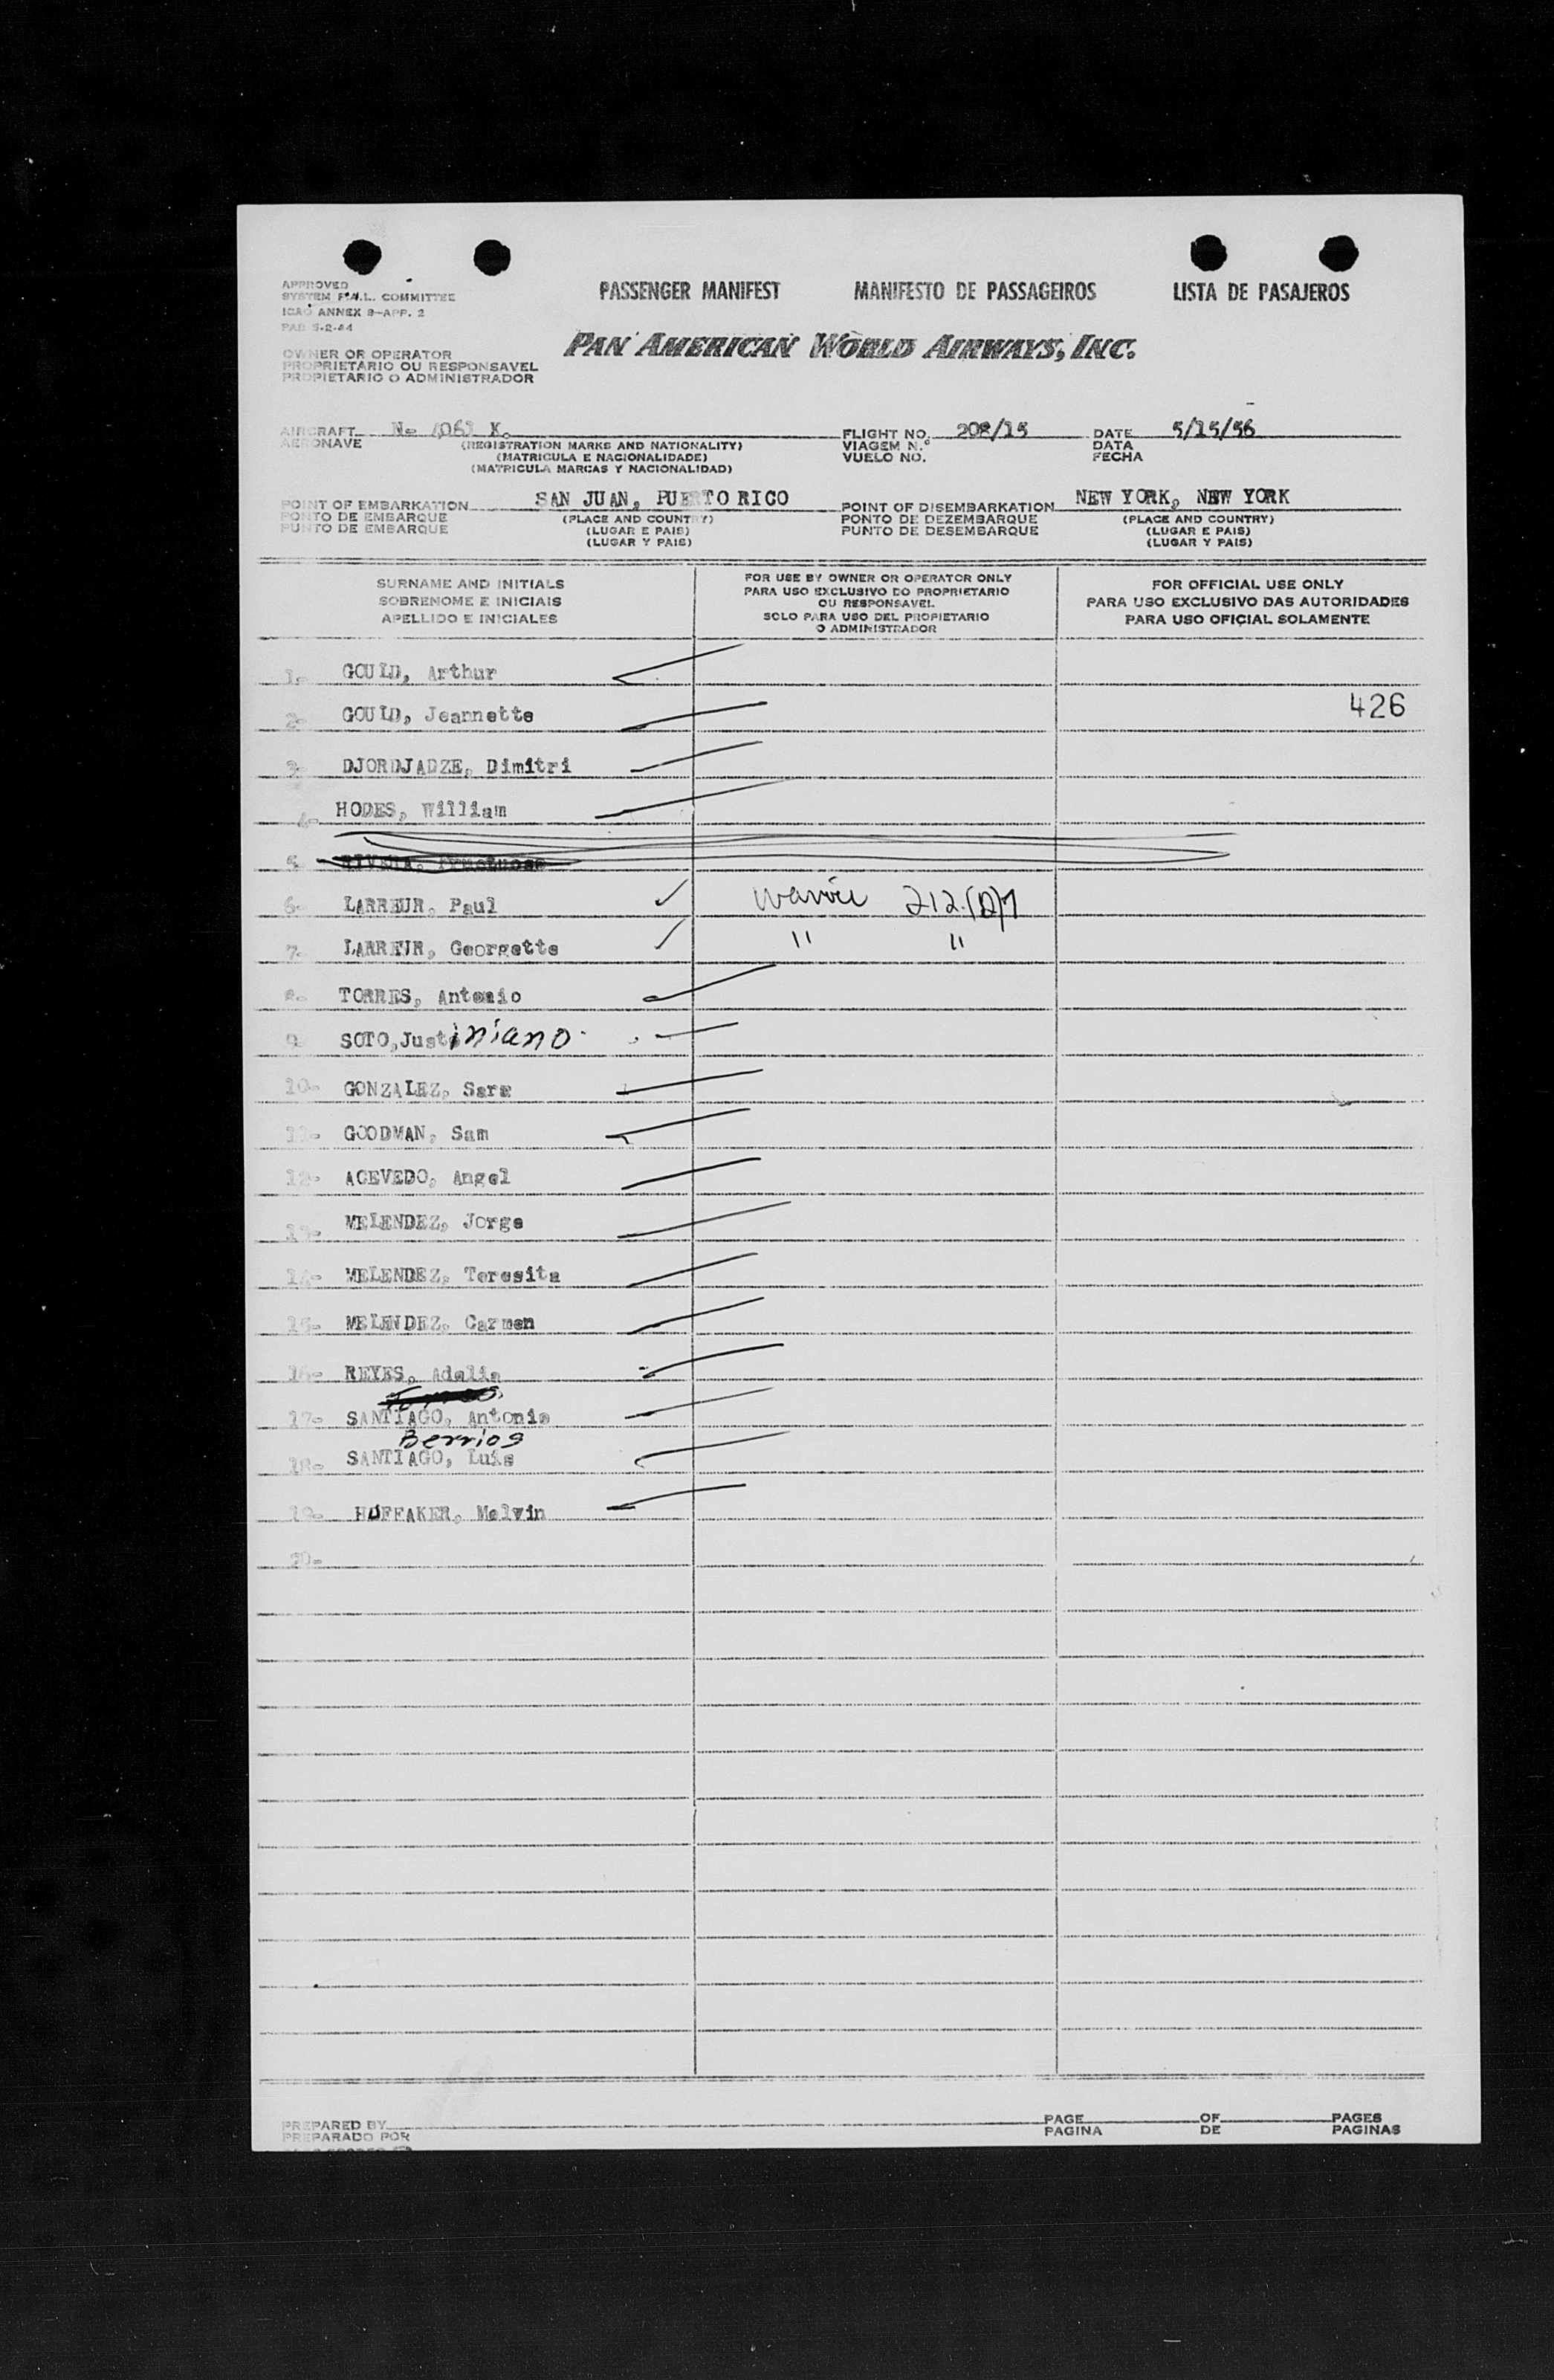 APPROVED
SYSTEM F.A.L. COMMITTEE
ICAO ANNEX 9-APP. 2
PAD 5-2-44
PASSENGER MANIFEST MANIFESTO DE PASSAGEIROS LISTA DE PASAJEROS
PAN AMERICAN WORLD AIRWAYS, INC.
OWNER OR OPERATOR
PROPRIETARIO OU RESPONSAVEL
PROPIETARIO O ADMINISTRADOR
AIRCRAFT N- K. FLIGHT NO. 208/15 DATE 5/15/56
AERONAVE (REGISTRATION MARKS AND NATIONALITY) VIAGEM N.° DATA
(MATRICULA E NACIONALIDADE) VUELO NO. FECHA
(MATRICULA MARCAS Y NACIONALIDAD)
POINT OF EMBARKATION SAN JUAN, PUERTO RICO POINT OF DISEMBARKATION NEW YORK, NEW YORK
PONTO DE EMBARQUE (PLACE AND COUNTRY) PONTO DE DEZEMBARQUE (PLACE AND COUNTRY)
PUNTO DE EMBARQUE (LUGAR E PAIS) PUNTO DE DESEMBARQUE (LUGAR E PAIS)
(LUGAR Y PAIS) (LUGAR Y PAIS)
SURNAME AND INITIALS
SOBRENOME E INICIAIS
APELLIDO E INICIALES
FOR USE BY OWNER OR OPERATOR ONLY
PARA USO EXCLUSIVO DO PROPRIETARIO
OU RESPONSAVEL
SOLO PARA USO DEL PROPIETARIO
O ADMINISTRADOR
FOR OFFICIAL USE ONLY
PARA USO EXCLUSIVO DAS AUTORIDADES
PARA USO OFICIAL SOLAMENTE
1- GOULD, Arthur
2- GOULD, Jeannette 426
3- DJORDJADZE, Dimitri
4- HODES, William
5- RIVERA,
6- LARREUR, Paul 212.(D)7
7- LARREUR, Georgette " "
8- TORRES, Antonio
9 SOTO,Justiniano
10- GONZALEZ, Sara
11- GOODMAN, Sam
12- ACEVEDO, Angel
13- MELENDEZ, Jorge
14- MELENDEZ, Teresita
15- MELENDEZ, Carmen
16- REYES, Adelia
17- SANTIAGO, Antonia
Berrios
18- SANTIAGO, Luis
19- HUFFAKER, Melvin
20-
PREPARED BY PAGE OF PAGES
PREPARADO POR PAGINA DE PAGINAS